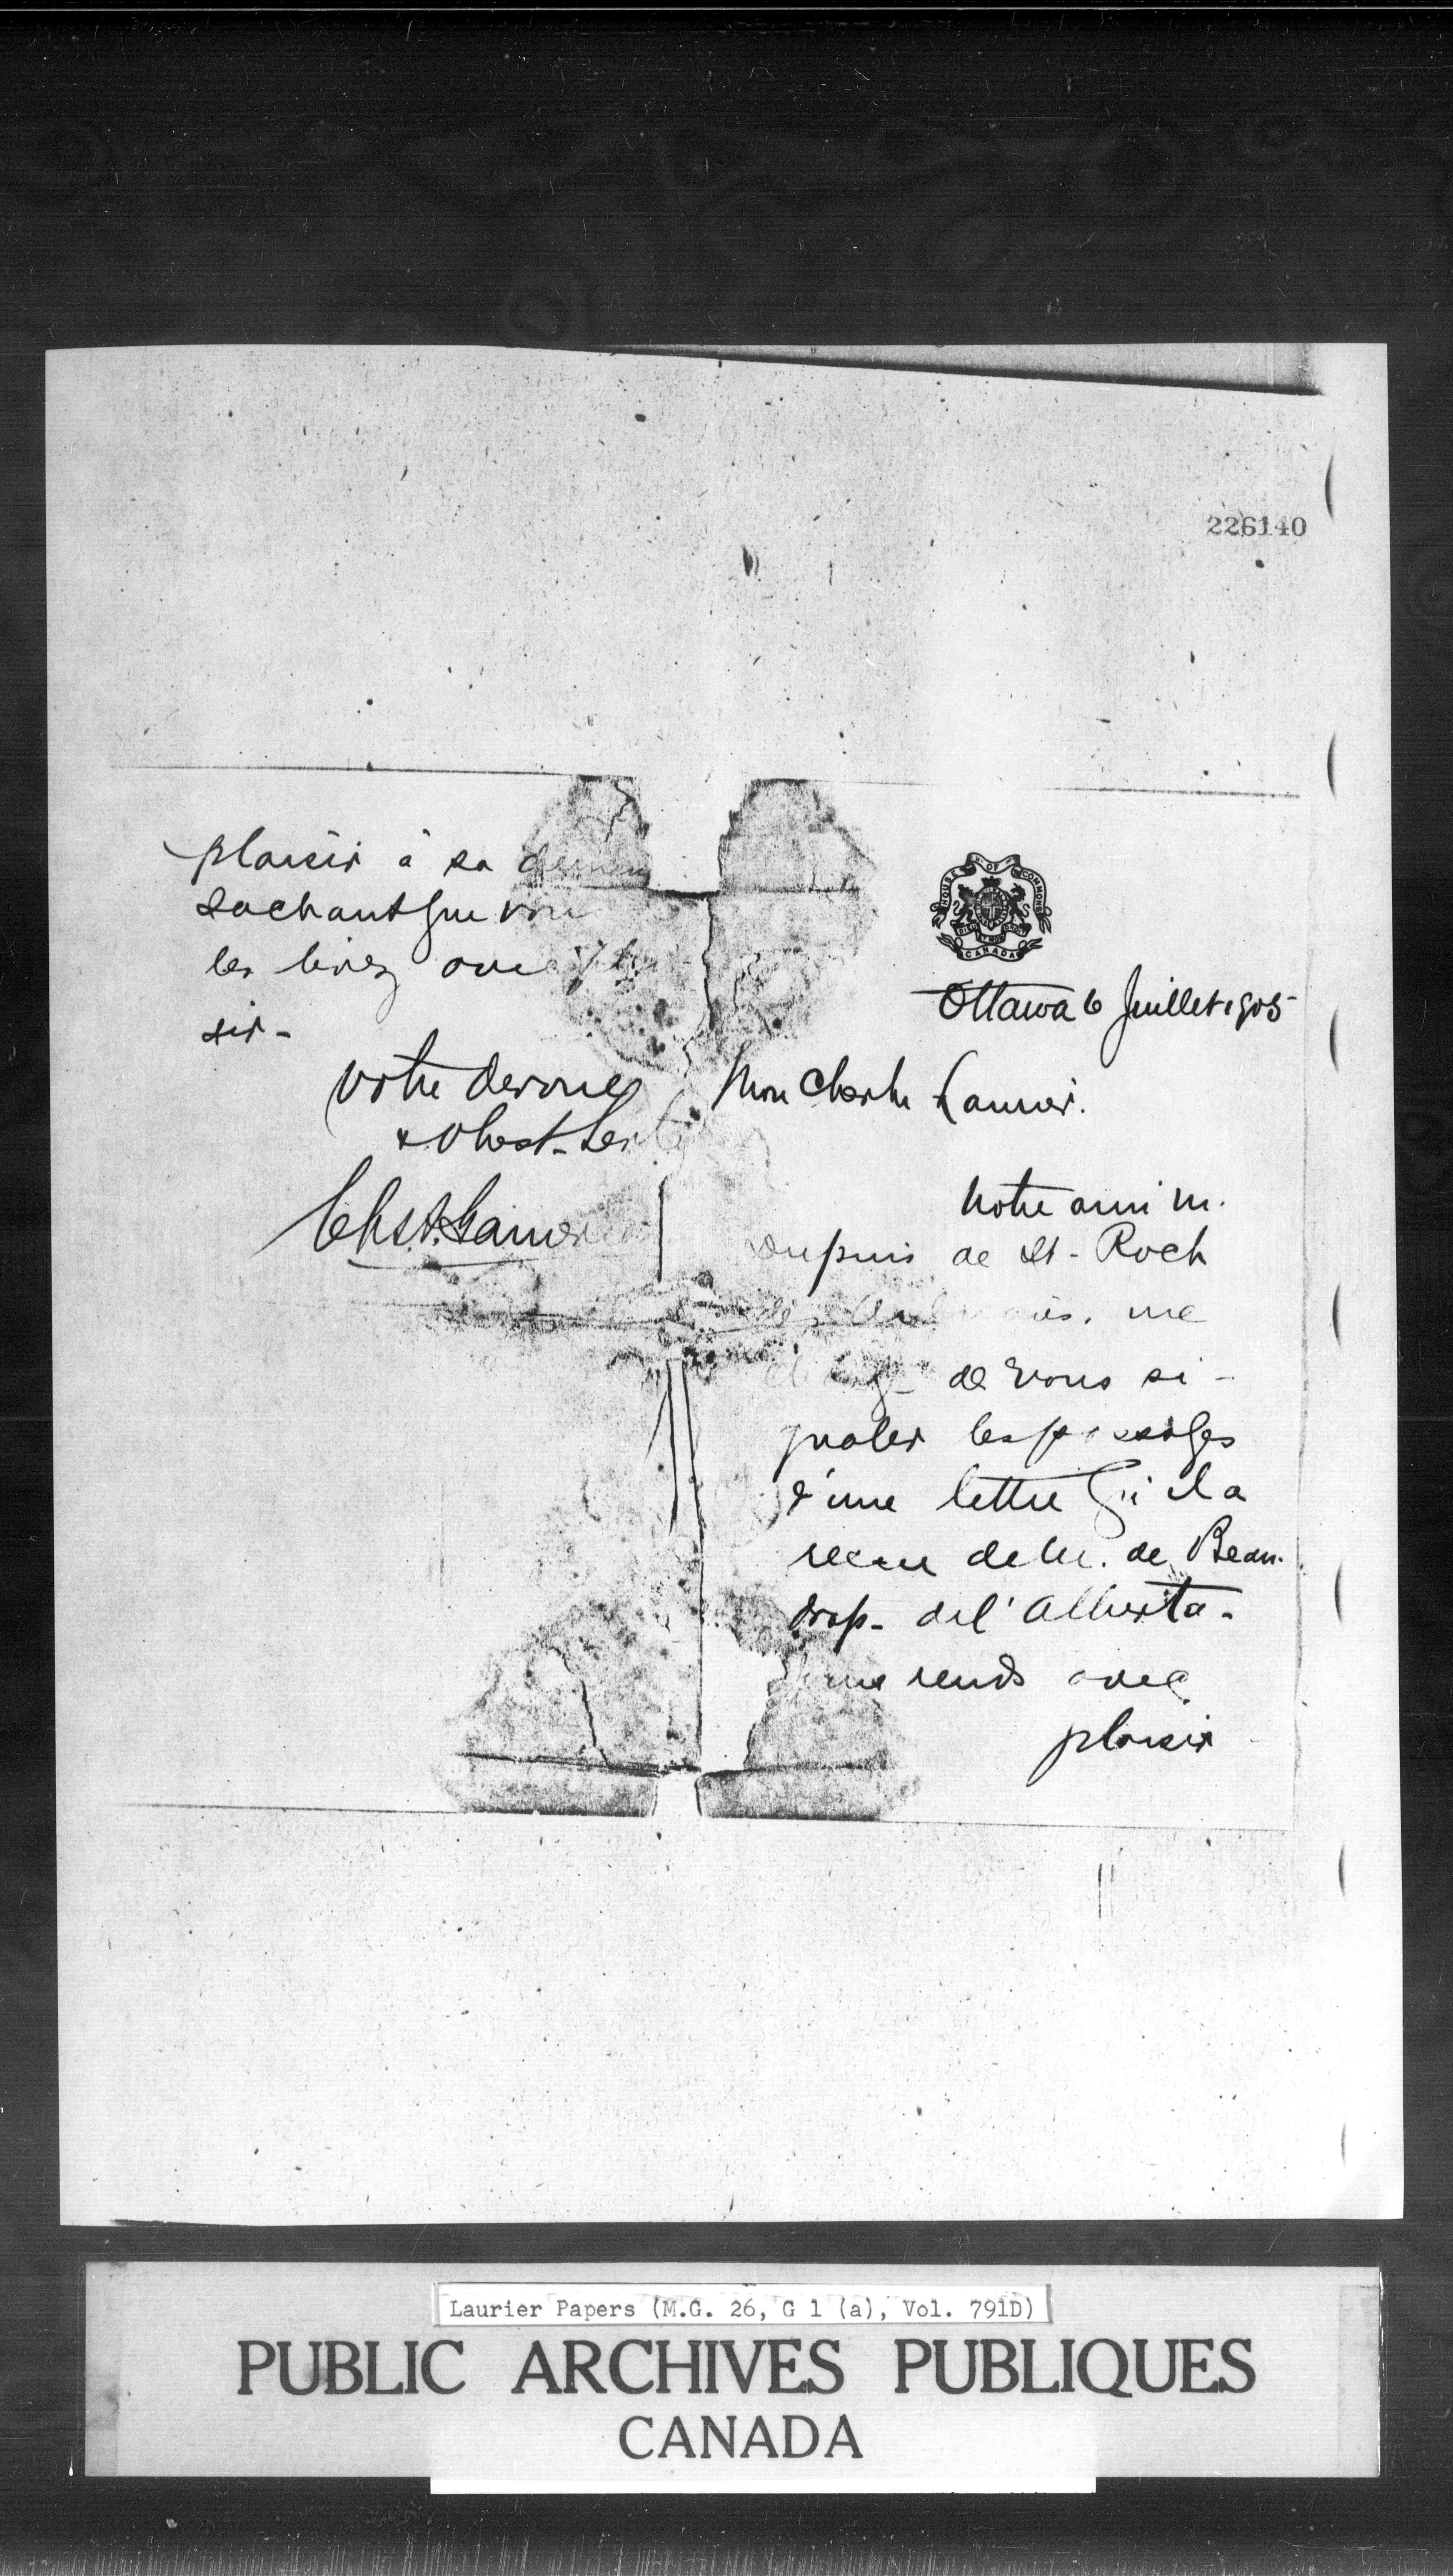 226140
HOUSE OF COMMONS
CANADA
Ottawa 6 Juillet 1905
Mon Cher Mr Laurier.
Notre ami M.
Dupuis de St-Roch
des Aulnaies, me
charge de vous si-
gnaler les passages
d'une lettre qu'il a
recue de M. de Beau-
drap. de l'Alberta-
me rends avec
plaisir
plaisir à sa deman
sachant que vous
les lirez avec plai
sir-
Votre devoué
& Obest. Ser
Laurier Papers (M.G. 26, G 1 (a), Vol. 791D)
PUBLIC ARCHIVES PUBLIQUES
CANADA